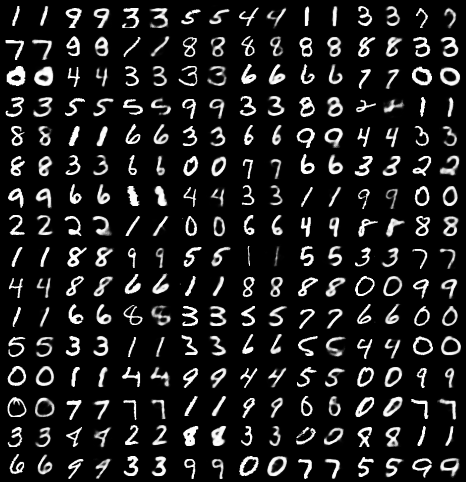 1 1 9 9 3 3 5 5 4 4 1 1 3 3 7 7
7 7 9 8 1 1 8 8 8 8 8 8 8 8 3 3
0 0 4 4 3 3 3 3 6 6 6 6 7 7 0 0
3 3 5 5 5 5 9 9 3 3 8 8 2 1 1
8 8 1 1 6 6 3 3 6 6 9 9 4 4 3 3
8 8 3 3 6 6 0 0 7 7 6 6 3 3 2 2
9 9 6 6 1 1 4 4 3 3 1 1 9 9 0 0
2 2 2 2 1 1 0 0 6 6 4 9 8 8 8 8
1 1 8 8 9 9 5 5 1 1 5 5 3 3 7 7
4 4 8 8 6 6 1 1 8 8 8 8 0 0 9 9
1 1 6 6 8 8 3 3 5 5 7 7 6 6 0 0
5 5 3 3 1 1 3 3 6 6 5 5 4 4 0 0
0 0 1 1 4 4 9 9 4 4 5 5 0 0 9 9
0 0 7 7 7 7 1 1 9 9 6 6 0 0 7 7
3 3 4 4 2 2 8 8 3 3 0 0 8 8 1 1
6 6 9 9 3 3 9 9 0 0 7 7 5 5 9 9